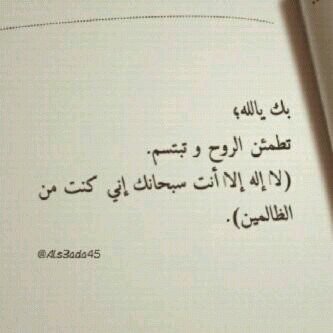 بك يالله؛
تطمئن الروح و تبتسم.
(لا إله إلا أنت سبحانك إني كنت من
الظالمين).
@ALs3ada45